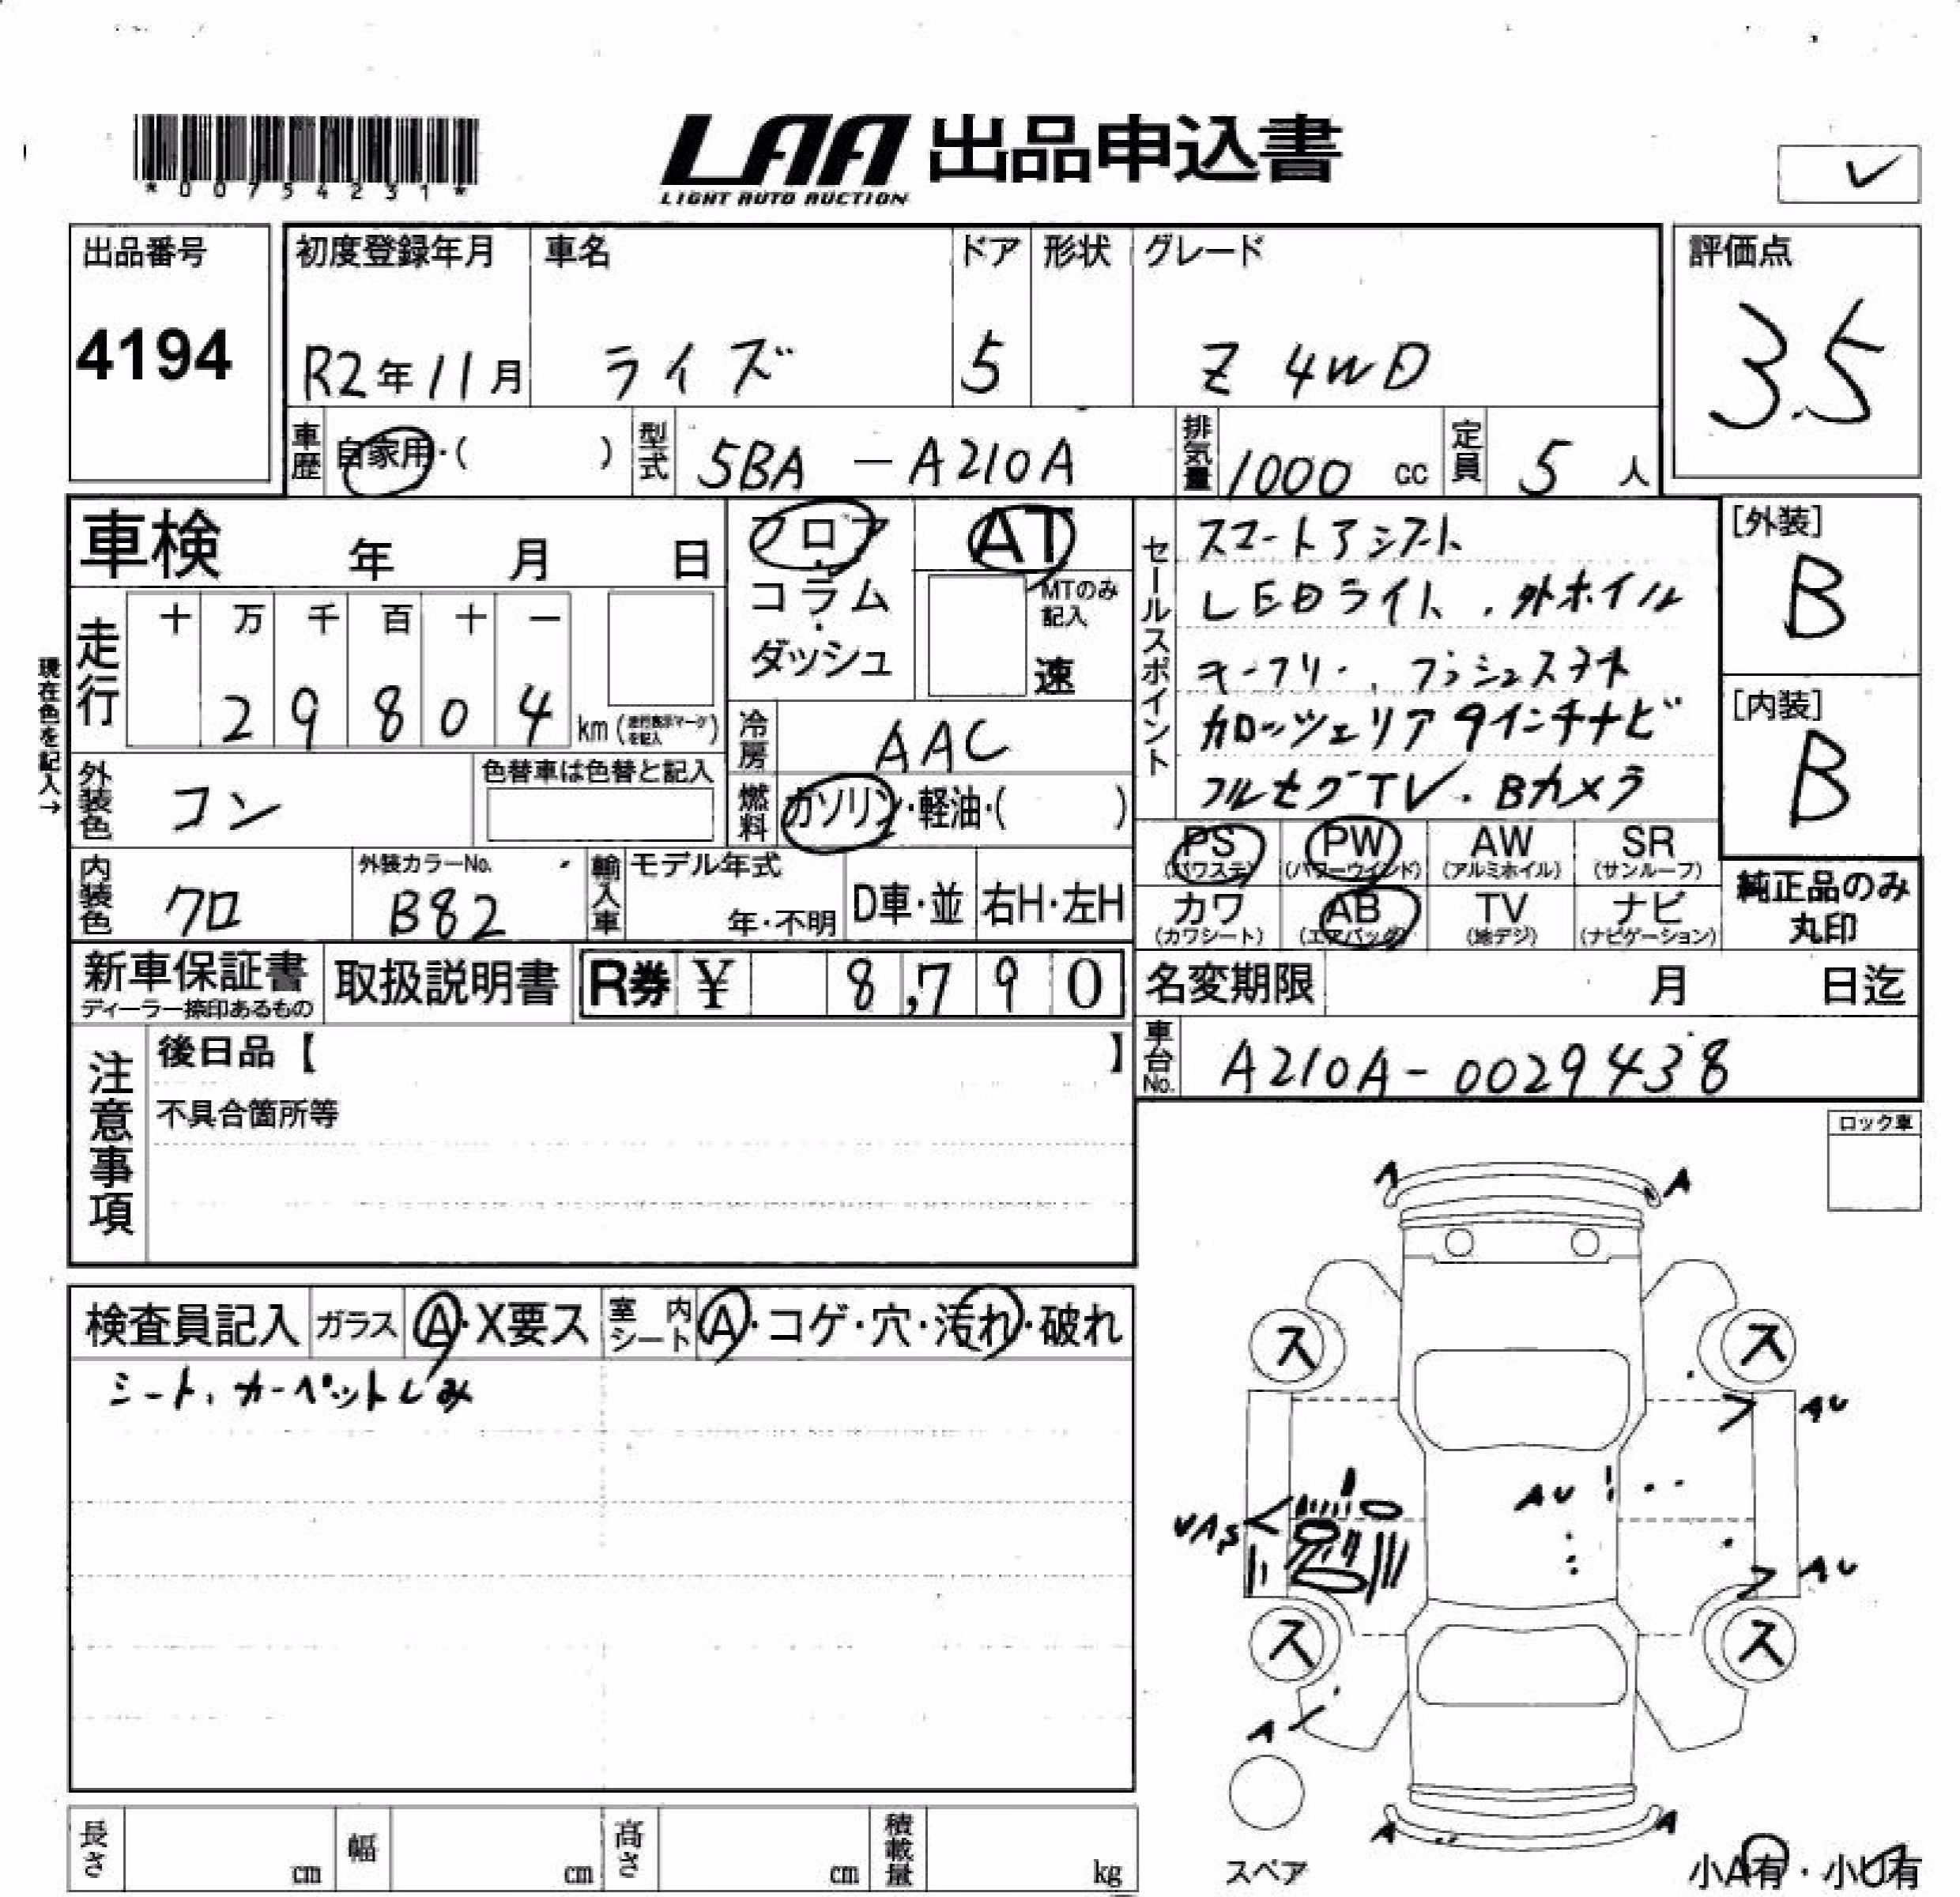 *00754231*
LAA 出品申込書
LIGHT AUTO AUCTION
✓
出品番号
4194
初度登録年月 車名 ドア 形状 グレード
R2年11月 ライズ 5 Z 4WD
評価点
3.5
車歴 自家用・( ) 型式 5BA-A210A 排気量 1000 cc 定員 5 人
車検 年 月 日
フロア
コラム・
ダッシュ
AT
MTのみ記入
速
セールスポイント
スマートアシスト
LEDライト、外ホイル
キーフリー、プッシュスタート
カロッツェリア9インチナビ
フルセグTV.Bカメラ
[外装]
B
[内装]
B
現在色を記入→
走行 十 万 千 百 十 一
2 9 8 0 4 km (走行表示マークを記入)
冷房 AAC
外装色 コン 色替車は色替と記入
燃料 ガソリン・軽油・( )
PS (パワステ) PW (パワーウインド) AW (アルミホイル) SR (サンルーフ)
カワ (カワシート) AB (エアバッグ) TV (地デジ) ナビ (ナビゲーション)
純正品のみ
丸印
内装色 クロ 外装カラーNo. B82 輸入車 モデル年式 年・不明 D車・並 右H・左H
新車保証書
ディーラー捺印あるもの
取扱説明書 R券 ¥ 8,790
名変期限 月 日迄
車台No. A210A-0029438
注意事項
後日品【 】
不具合箇所等
ロック車
検査員記入 ガラス A・X要ス 室内シート A・コゲ・穴・汚れ・破れ
シート、カーペットしみ
A A
ス ス
AU
AU
UAS
AU
ス ス
A
A A
スペア
小A有・小U有
長さ cm 幅 cm 高さ cm 積載量 kg